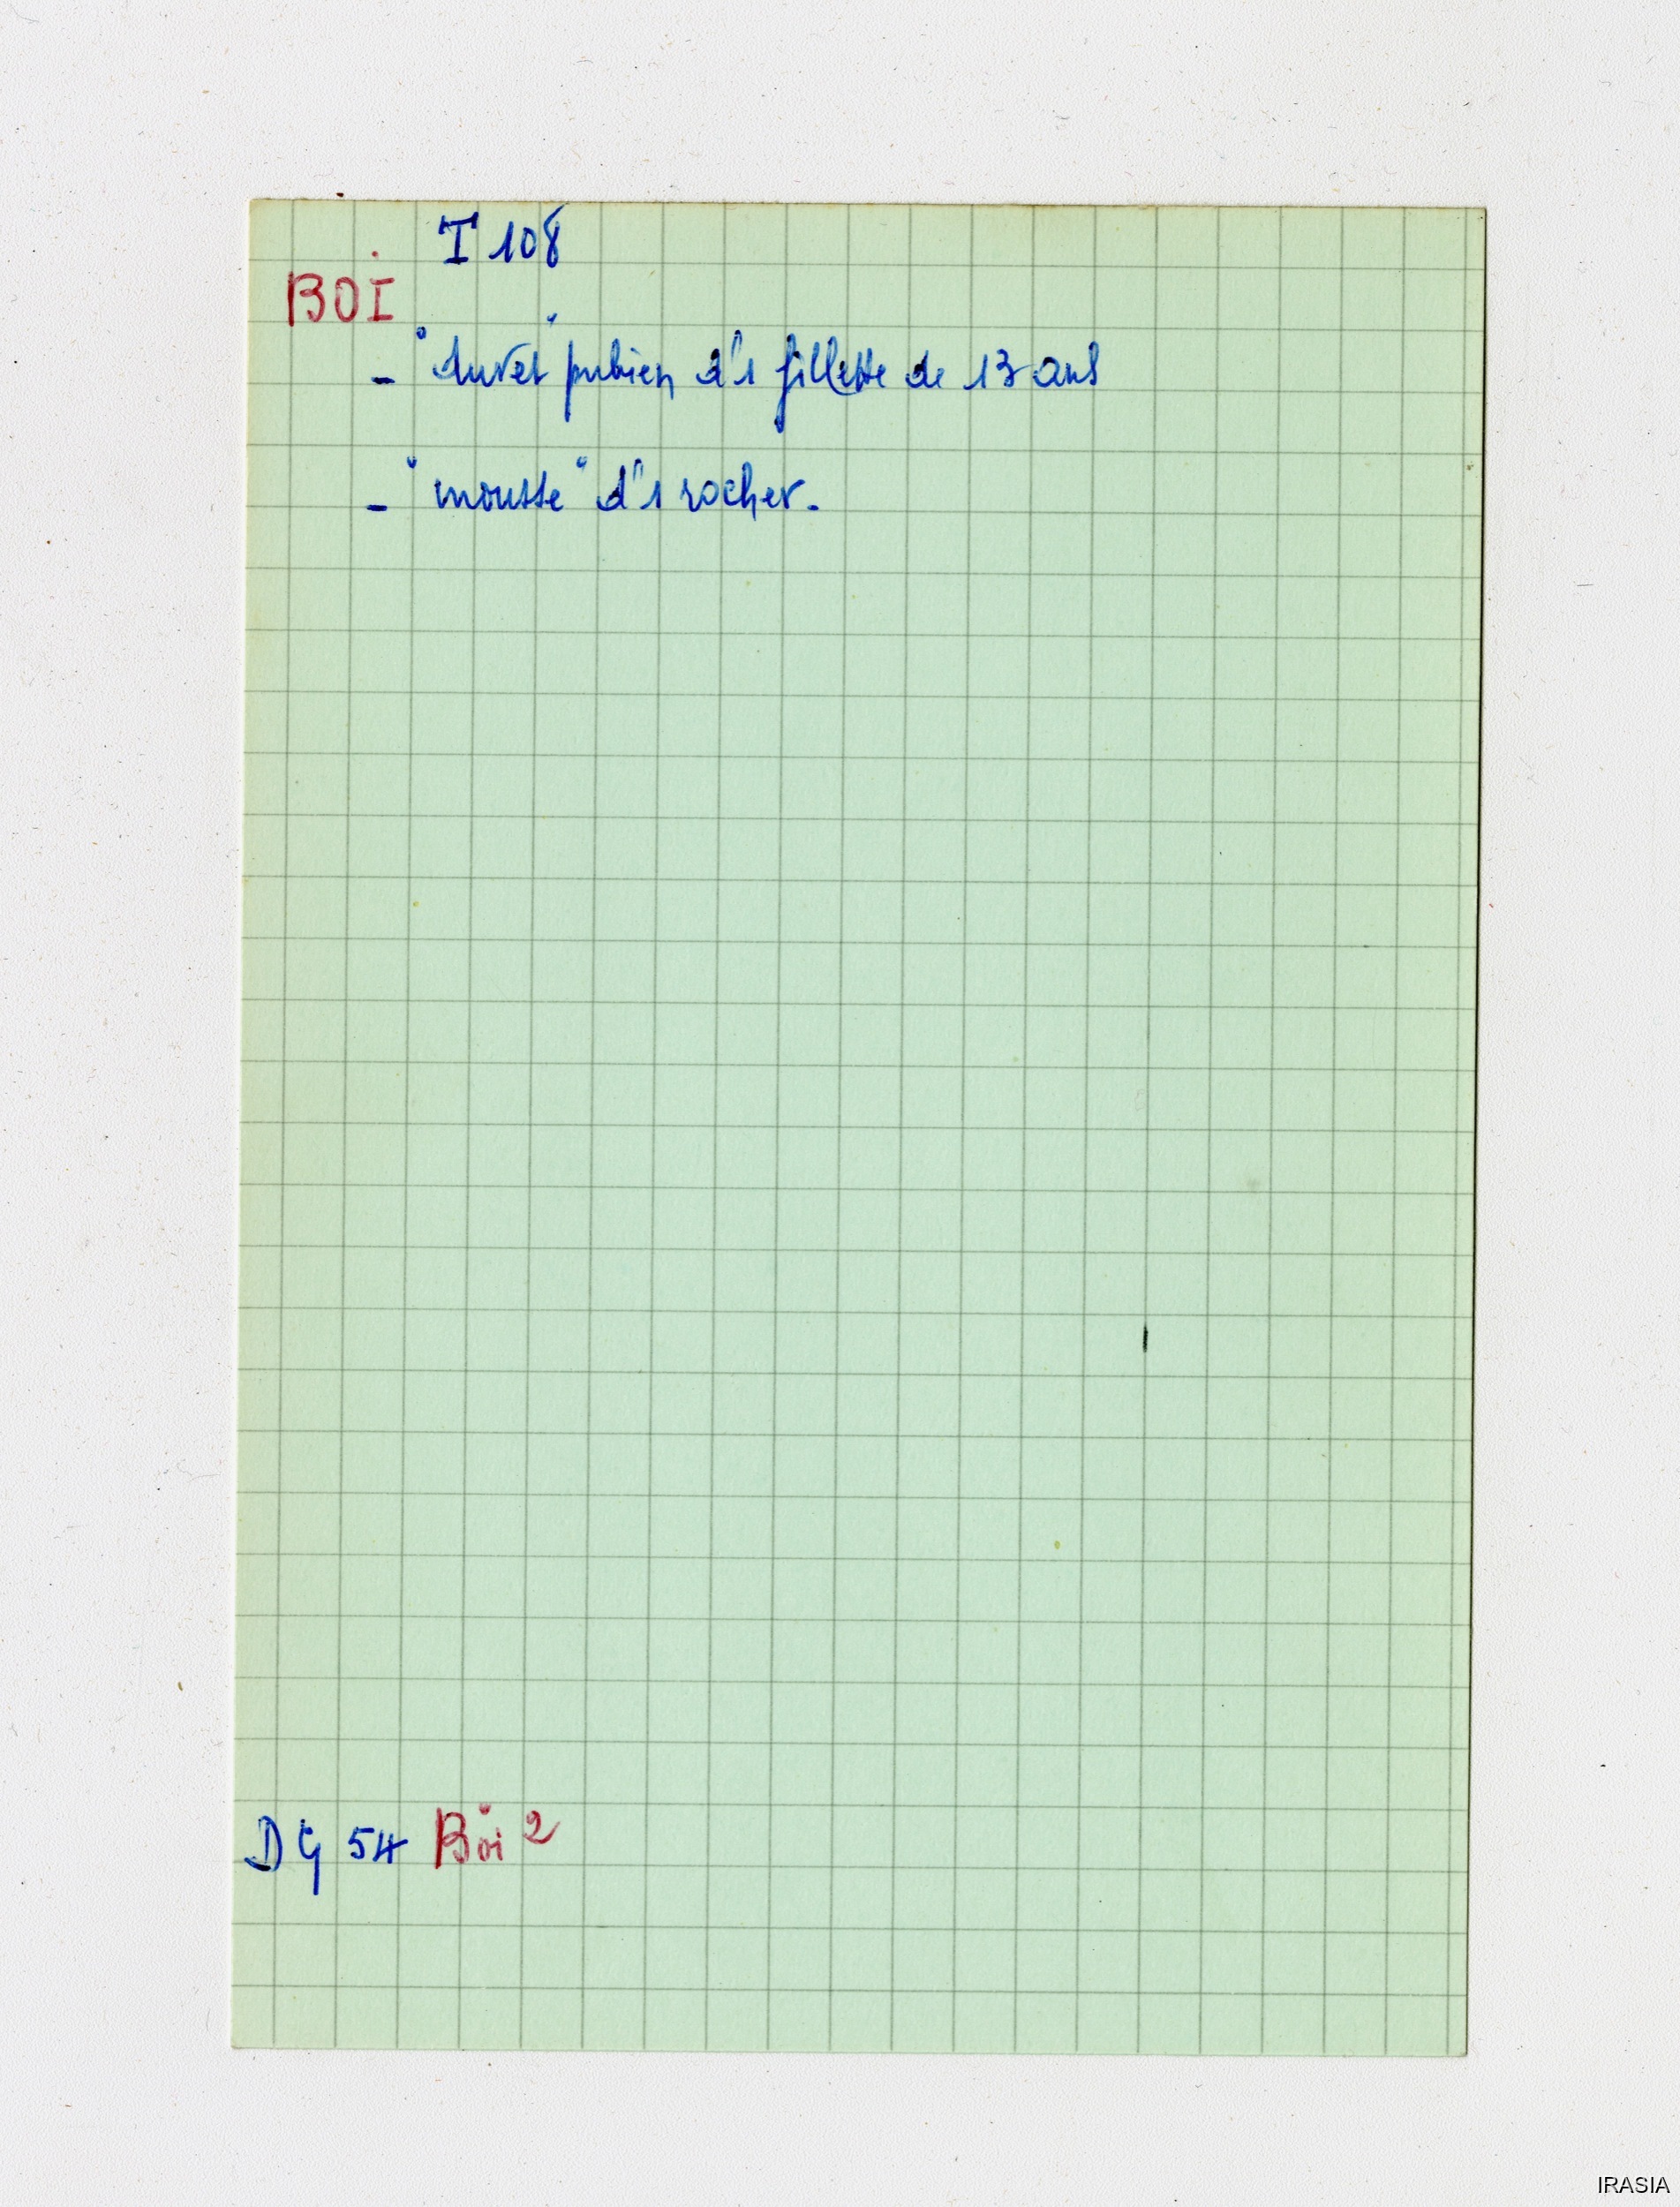 I 108
BOI
- "duvet" pubien d'1 fillette de 13 ans
- "mousse" d'1 rocher.
DG 54 Boi 2
IRASIA